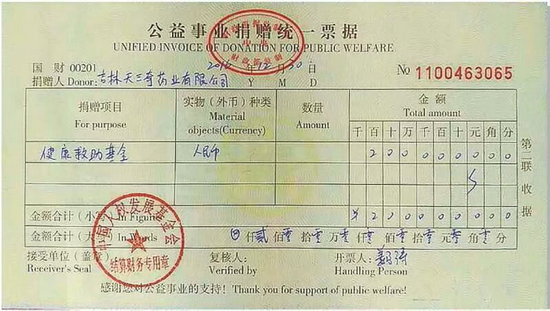 公益事业捐赠统一票据
UNIFIED INVOICE OF DONATION FOR PUBLIC WELFARE
国财 00201 年 月 日 No 1100463065
捐赠人 Donor: 吉林天三奇药业有限公司 Y M D
捐赠项目 For purpose
实物（外币）种类 Material objects(Currency)
数量 Amount
金额 Total amount
千 百 十 万 千 百 十 元 角 分
健康救助基金 人民币 2 0 0 0 0 0 0 0 0
金额合计（小写）In Figures ¥ 2 0 0 0 0 0 0 0 0
金额合计（大写）In Words 仟 贰 佰 零 拾 零 万 零 仟 零 佰 零 拾 零 元 零 角 零 分
第二联 收据
接受单位（盖章） Receiver's Seal
复核人： Verified by
开票人： Handling Person
感谢您对公益事业的支持！Thank you for support of public welfare!
中国人权发展基金会
结算财务专用章